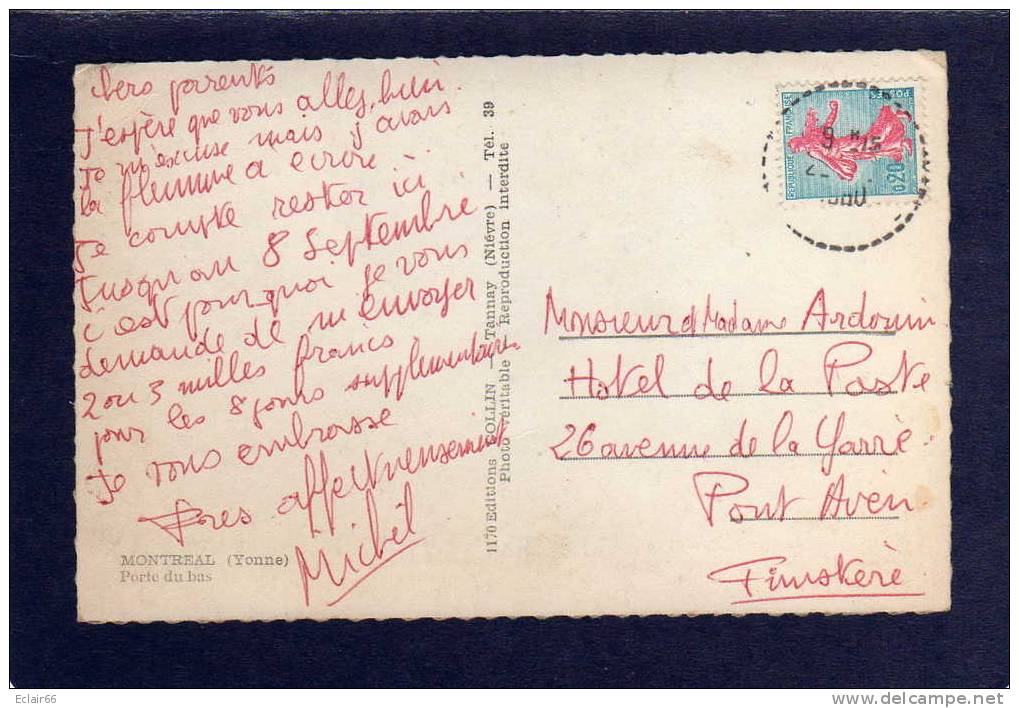 chers parents
J'espère que vous allez bien.
Je m'excuse mais j'avais
la flemme a ecrire.
Je compte rester ici
Jusqu'au 8 Septembre
c'est pourquoi je vous
demande de m'envoyer
2 ou 3 milles francs
pour les 8 jours supplementaires
Je vous embrasse
Très affectueusement
Michel
MONTREAL (Yonne)
Porte du bas
1170 Editions — Tannay (Nièvre) — Tél. 39
Photo véritable Reproduction interdite
REPUBLIQUE FRANÇAISE
POSTES
0,20
Monsieur et Madame Ardouin
Hôtel de la Poste
26 avenue de la Garre
Pont Aven
Finistère
Eclair66
www.delcampe.net